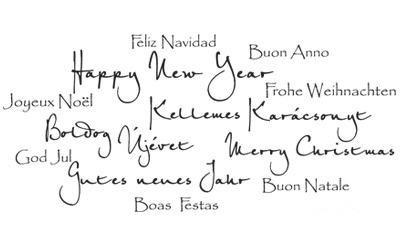 Feliz Navidad
Buon Anno
Happy New Year
Frohe Weihnachten
Joyeux Noël
Kellemes Karácsonyt
Boldog Újévet
Merry Christmas
God Jul
Gutes neues Jahr
Buon Natale
Boas Festas